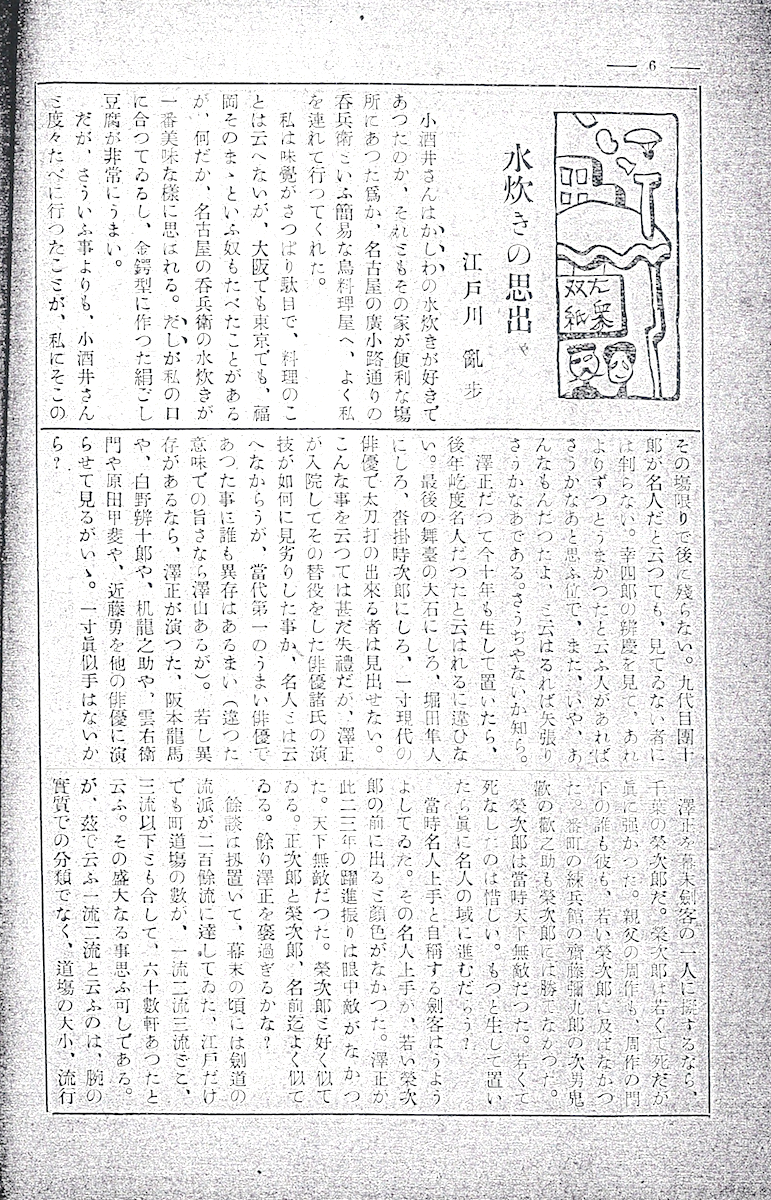 — 6 —
大衆
双紙
水炊きの思出
江戸川亂歩
小酒井さんはかしわの水炊きが好きで
あつたのか、それともその家が便利な塲
所にあつた爲か、名古屋の廣小路通りの
呑兵衛といふ簡易な鳥料理屋へ、よく私
を連れて行つてくれた。
私は味覺がさつぱり駄目で、料理のこ
とは云へないが、大阪でも東京でも、福
岡そのまゝといふ奴もたべたことがある
が、何だか、名古屋の呑兵衛の水炊きが
一番美味な樣に思はれる。だしが私の口
に合つてゐるし、金鍔型に作つた絹ごし
豆腐が非常にうまい。
だが、さういふ事よりも、小酒井さん
と度々たべに行つたことが、私にそこの
その塲限りで後に殘らない。九代目團十
郎が名人だと云つても、見てゐない者に
は判らない。幸四郎の辨慶を見て、あれ
よりずつとうまかつたと云ふ人があれば
さうかなあと思ふ位で、また、いや、あ
んなもんだつたよ、と云はるれば矢張り
さうかなあである。さうぢやないか知ら。
澤正だつて今十年も生して置いたら、
後年屹度名人だつたと云はれるに違ひな
い。最後の舞臺の大石にしろ、堀田隼人
にしろ、沓掛時次郎にしろ、一寸現代の
俳優で太刀打の出來る者は見出せない。
こんな事を云つては甚だ失禮だが、澤正
が入院してその替役をした俳優諸氏の演
技が如何に見劣りした事か、名人とは云
へなからうが、當代第一のうまい俳優で
あつた事に誰も異存はあるまい（違つた
意味での旨さなら澤山あるが）。若し異
存があるなら、澤正が演つた、阪本龍馬
や、白野辨十郎や、机龍之助や、雲右衛
門や原田甲斐や、近藤勇を他の俳優に演
らせて見るがいゝ。一寸眞似手はないか
ら？
澤正を幕末劍客の一人に擬するなら、
千葉の榮次郎だ。榮次郎は若くて死だが
眞に强かつた。親父の周作も、周作の門
下の誰も彼も、若い榮次郎に及ばなかつ
た。番町の練兵館の齊藤彌九郎の次男鬼
歡の歡之助も榮次郎には勝てなかつた。
榮次郎は當時天下無敵だつた。若くて
死なしたのは惜しい。もつと生して置い
たら眞に名人の域に進むだらう？
當時名人上手と自稱する劍客はうよう
よしてゐた。その名人上手が、若い榮次
郎の前に出ると顔色がなかつた。澤正が
此二三年の躍進振りは眼中敵がなかつ
た。天下無敵だつた。榮次郎と好く似て
ゐる。正次郎と榮次郎、名前迄よく似て
ゐる。餘り澤正を襃過ぎるかな？
餘談は扨置いて、幕末の頃には劍道の
流派が二百餘流に達してゐた、江戸だけ
でも町道塲の數が、一流二流三流どこ、
三流以下とも合して、六十數軒あつたと
云ふ。その盛大なる事思ふ可しである。
が、茲で云ふ一流二流と云ふのは、腕の
實質での分類でなく、道塲の大小、流行